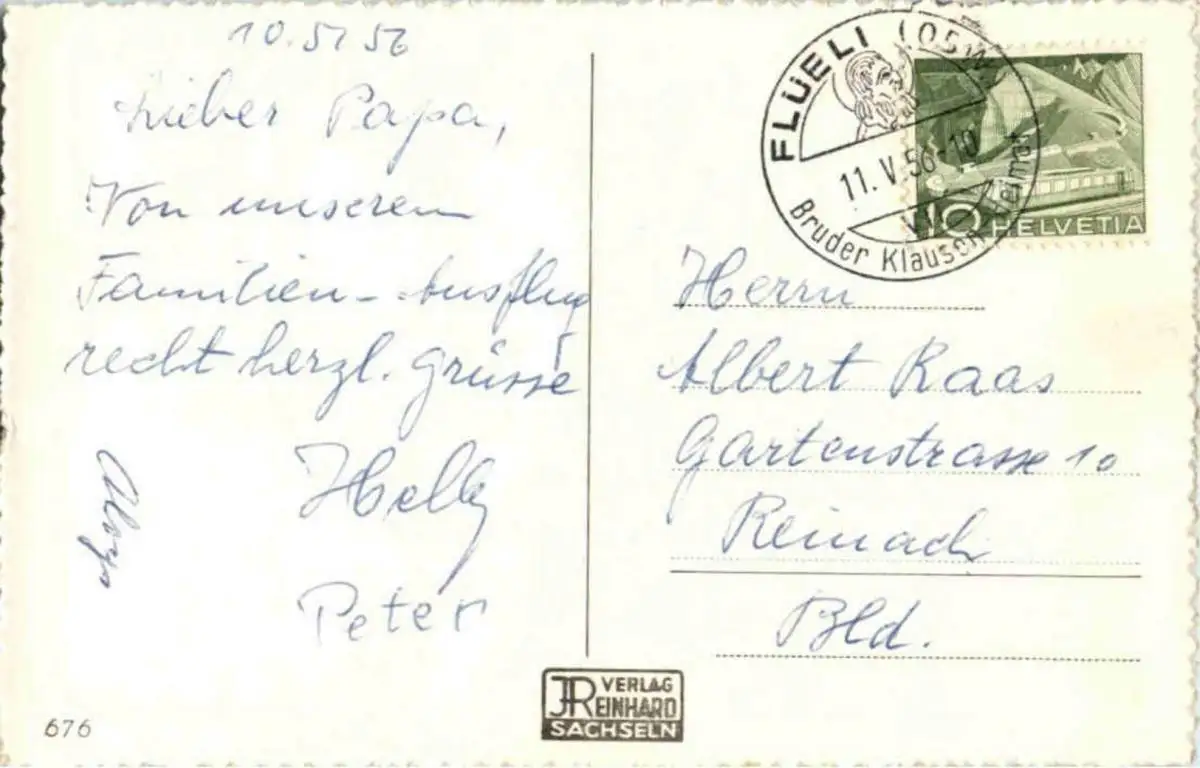 10.5.56
Lieber Papa,
Von unserem
Familien-Ausflug
recht herzl. Grüsse
Helly
Peter
Aloys
676
VERLAG
REINHARD
SACHSELN
FLÜELI (OBW)
11.V.56-10
Bruder Klausen Heimat
10 HELVETIA
Herrn
Albert Raas
Gartenstrasse 10
Reinach
Bld.